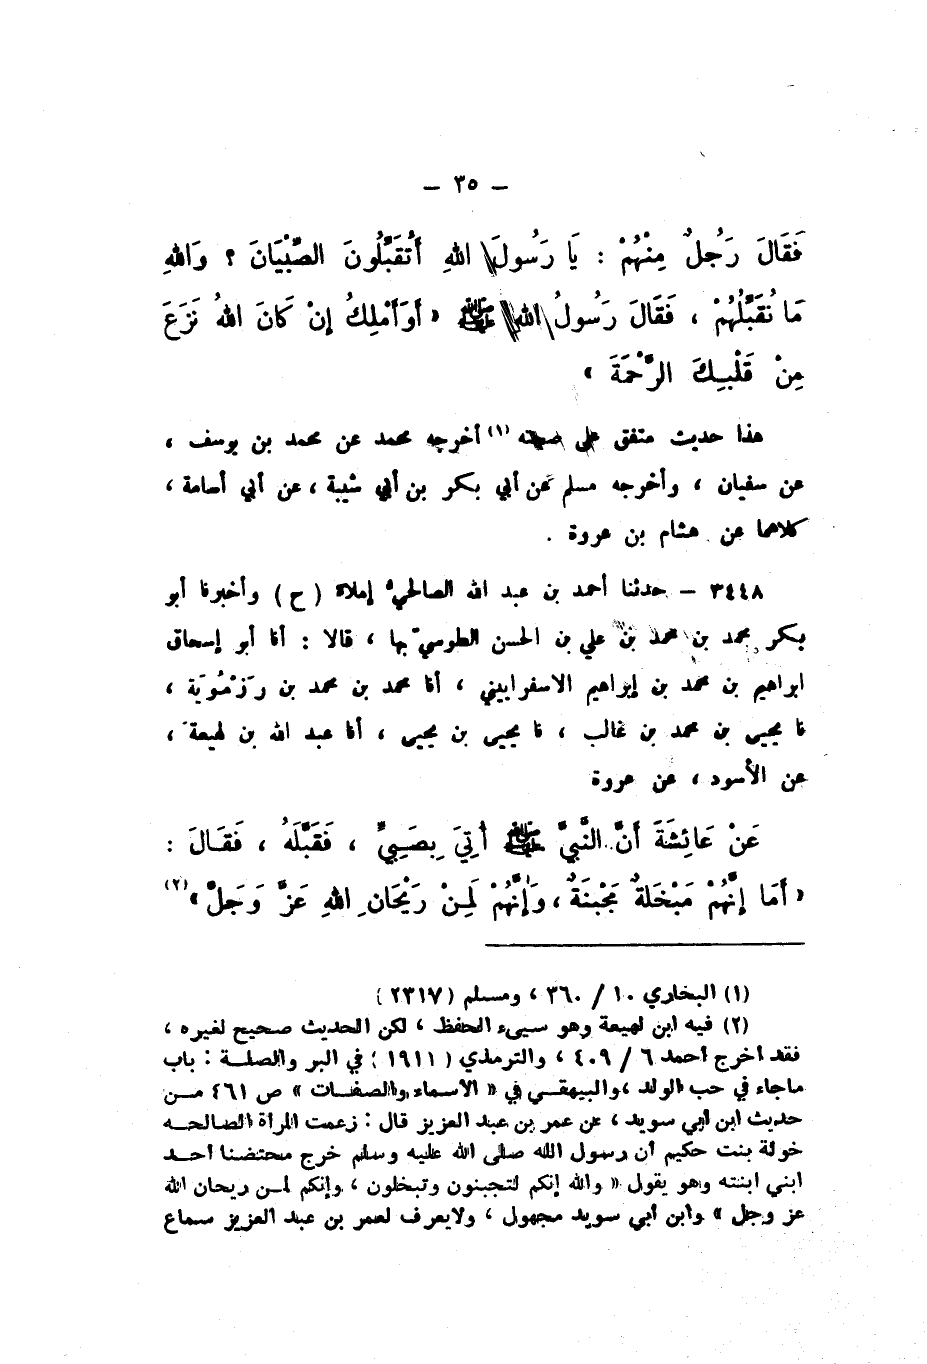 — ٣٥ —
فَقَالَ رَجُلٌ مِنْهُمْ : يَا رَسُولَ اللهِ أَتُقَبِّلُونَ الصِّبْيَانَ ؟ وَاللهِ
مَا نُقَبِّلُهُمْ ، فَقَالَ رَسُولُ اللهِ ﷺ « أَوَأَمْلِكُ إِنْ كَانَ اللهُ نَزَعَ
مِنْ قَلْبِكَ الرَّحْمَةَ »
هذا حديث متفق على صحته (١) أخرجه محمد عن محمد بن يوسف ،
عن سفيان ، وأخرجه مسلم عن أبي بكر بن أبي شيبة ، عن أبي أسامة ،
كلاهما عن هشام بن عروة .
٣٤٤٨ — حدثنا أحمد بن عبد الله الصالحيُ إملاءً ( ح ) وأخبرنا أبو
بكر محمد بن محمد بن علي بن الحسن الطوسيّ بها ، قالا : أنا أبو إسحاق
ابراهيم بن محمد بن إبراهيم الاسفراييني ، أنا محمد بن محمد بن رَزْمُوَيَة ،
نا يحيى بن محمد بن غالب ، نا يحيى بن يحيى ، أنا عبد الله بن لهيعةَ ،
عن الأسود ، عن عروة
عَنْ عَائِشَةَ أَنَّ النَّبِيَّ ﷺ أُتِيَ بِصَبِيٍّ ، فَقَبَّلَهُ ، فَقَالَ :
« أَمَا إِنَّهُمْ مَبْخَلَةٌ مَجْبَنَةٌ ، وَإِنَّهُمْ لَمِنْ رَيْحَانِ اللهِ عَزَّ وَجَلَّ » (٢)
(١) البخاري ١٠ / ٣٦٠ ، ومسلم (٢٣١٧)
(٢) فيه ابن لهيعة وهو سيىء الحفظ ، لكن الحديث صحيح لغيره ،
فقد أخرج أحمد ٦ / ٤٠٩ ، والترمذي ( ١٩١١ ) في البر والصلة : باب
ماجاء في حب الولد ، والبيهقي في « الأسماء والصفات » ص ٤٦١ من
حديث ابن أبي سويد ، عن عمر بن عبد العزيز قال : زعمت المرأة الصالحه
خولة بنت حكيم أن رسول الله صلى الله عليه وسلم خرج محتضنا أحد
ابني ابنته وهو يقول « والله إنكم لتجبنون وتبخلون ، وإنكم لمن ريحان الله
عز وجل » وابن أبي سويد مجهول ، ولايعرف لعمر بن عبد العزيز سماع